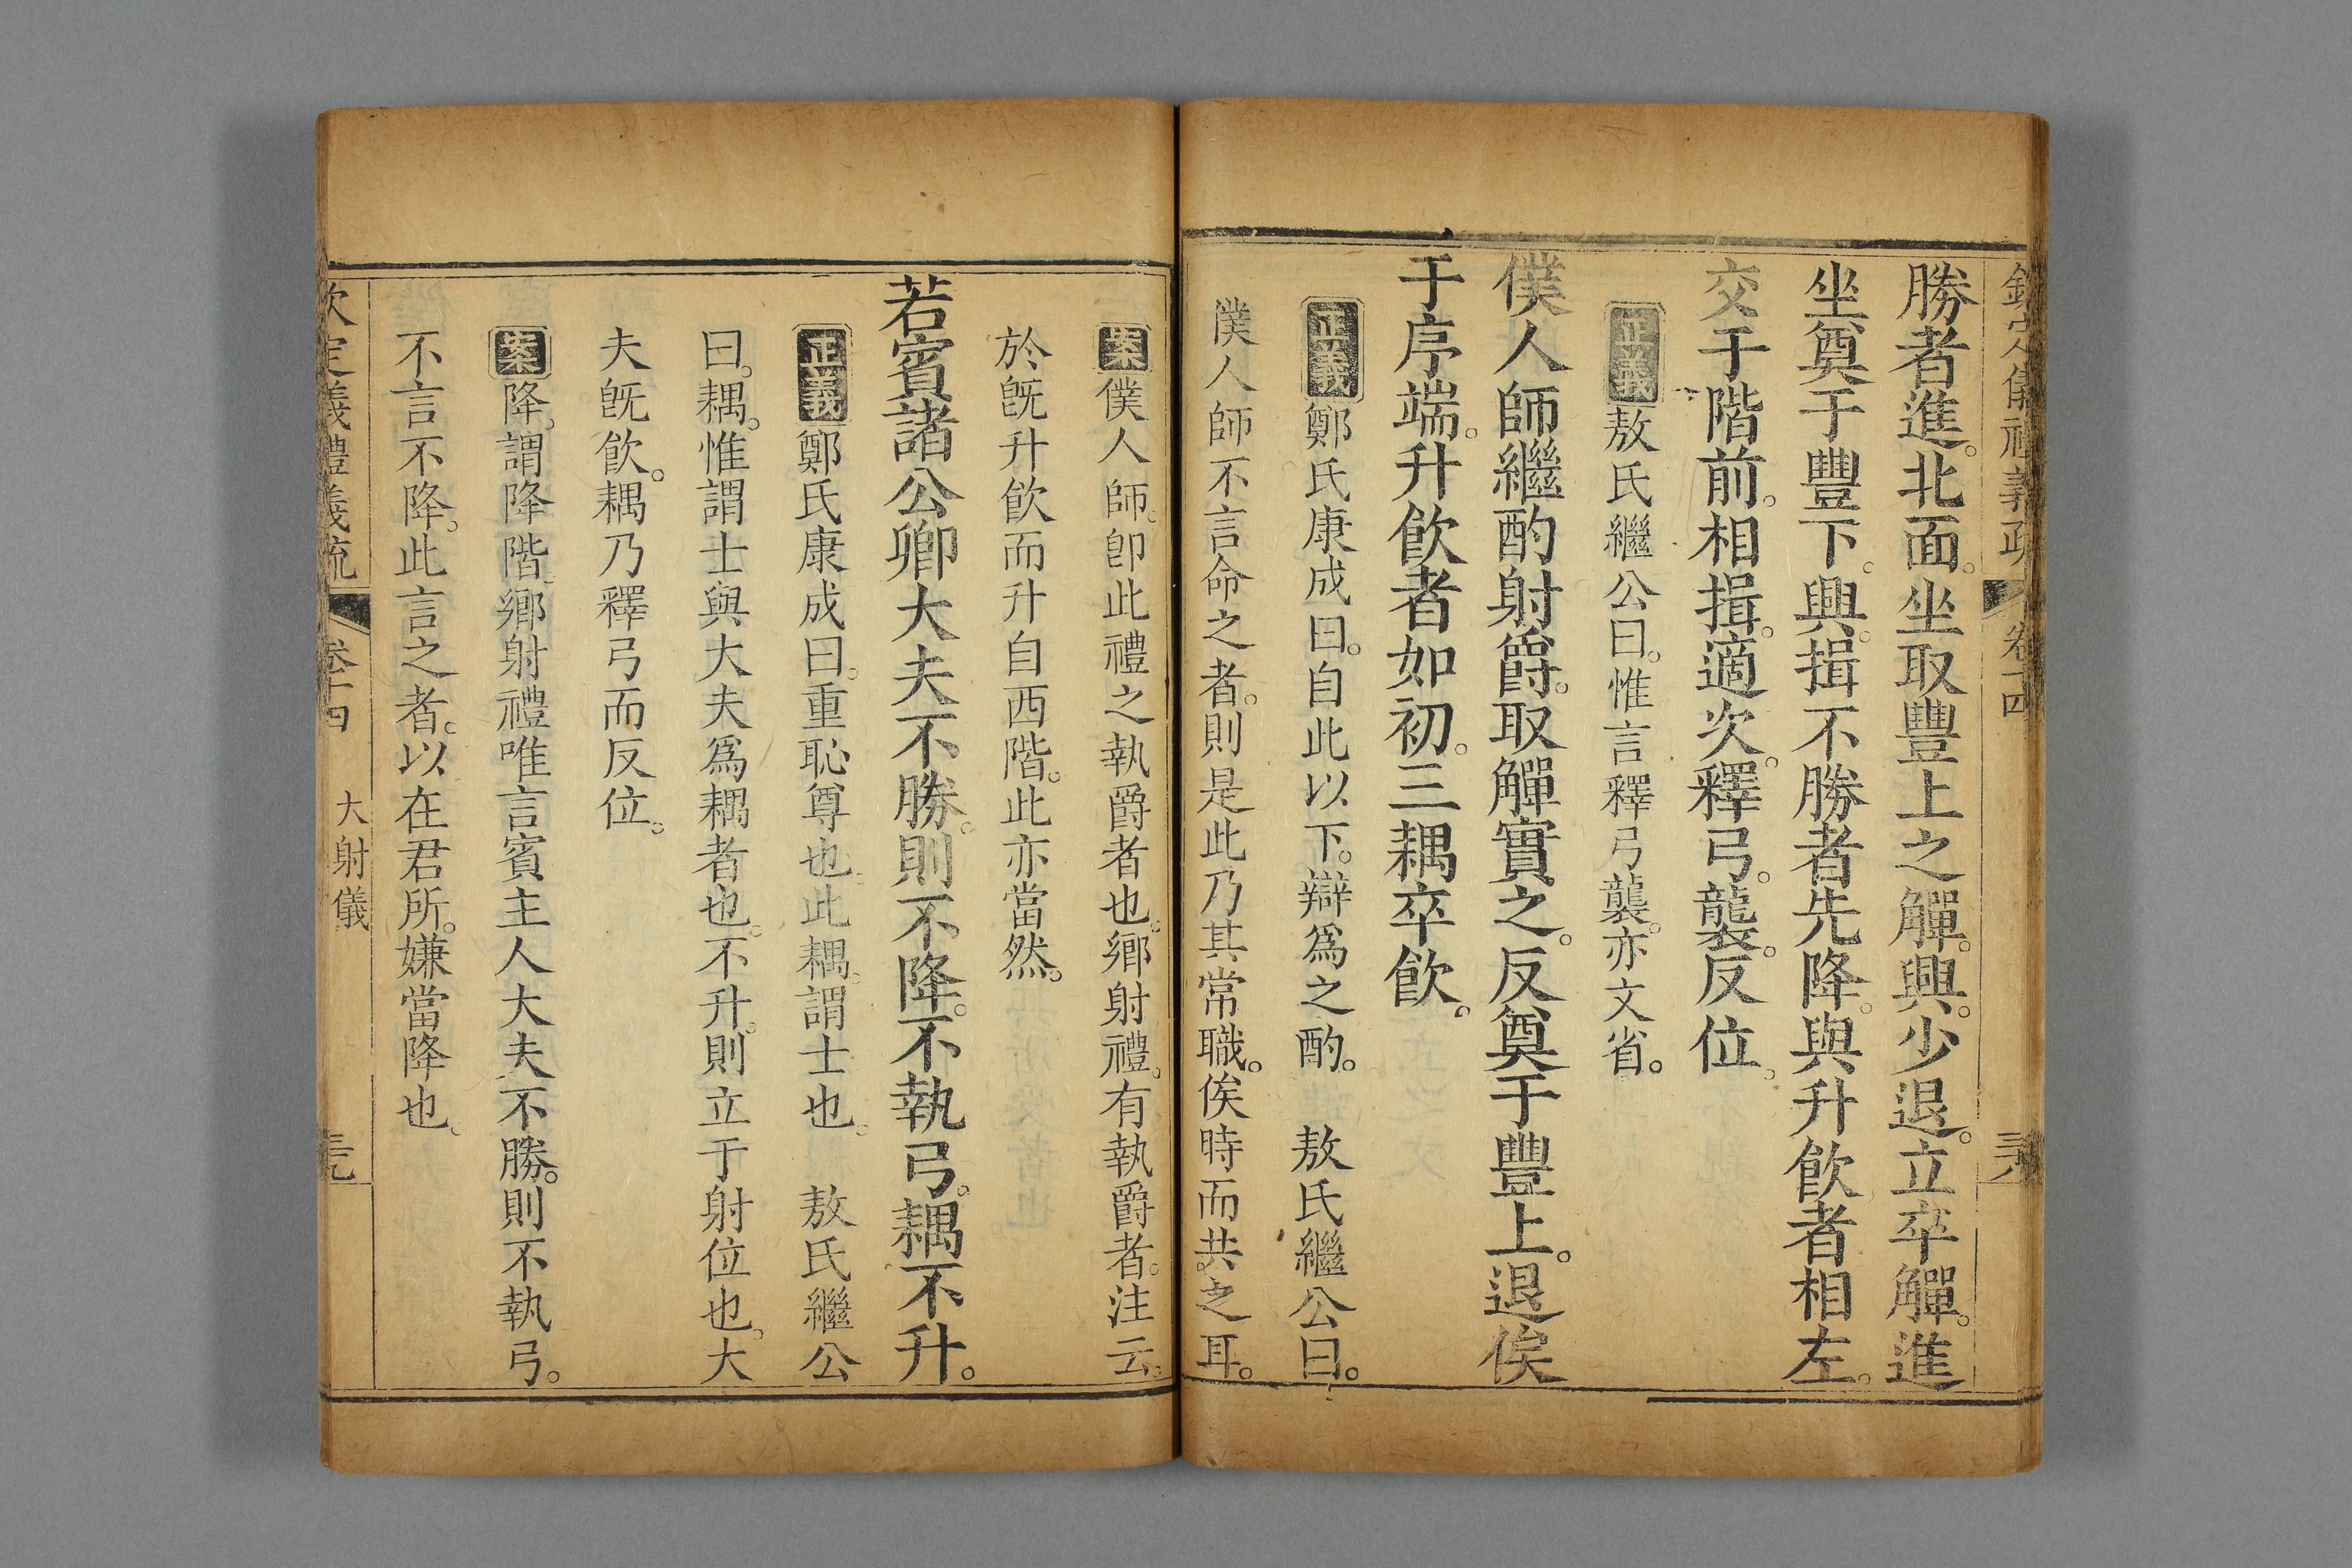 欽定儀禮義疏 卷十四 三十八
勝者進。北面。坐取豐上之觶。興。少退。立卒觶。進
坐奠于豐下。興。揖不勝者先降。與升飮者相左。
交于階前。相揖。適次。釋弓。襲。反位。
正義敖氏繼公曰。惟言釋弓襲。亦文省。
僕人師繼酌射爵。取觶實之。反奠于豐上。退俟
于序端。升飮者如初。三耦卒飮。
正義鄭氏康成曰。自此以下。辯爲之酌。 敖氏繼公曰。
僕人師不言命之者。則是此乃其常職。俟時而共之耳。
案僕人師。卽此禮之執爵者也。鄉射禮。有執爵者。注云。
於旣升飮而升自西階。此亦當然。
若賓諸公卿大夫不勝。則不降。不執弓。耦不升。
正義鄭氏康成曰。重恥尊也。此耦。謂士也。 敖氏繼公
曰。耦。惟謂士與大夫爲耦者也。不升。則立于射位也。大
夫旣飮。耦乃釋弓而反位。
案降。謂降階。鄉射禮唯言賓主人大夫不勝。則不執弓。
不言不降。此言之者。以在君所。嫌當降也。
欽定儀禮義疏 卷十四 大射儀 三十九